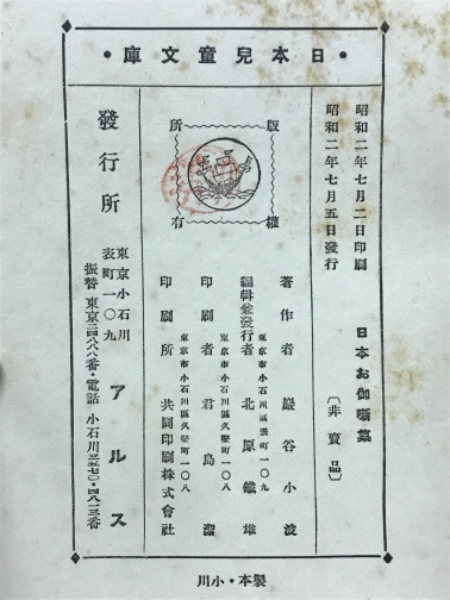 日本兒童文庫
昭和二年七月二日印刷
昭和二年七月五日發行
日本お伽噺集
〔非賣品〕
版權所有
著作者 巖谷小波
東京市小石川區表町一〇九
編輯兼發行者 北原鐵雄
東京市小石川區久堅町一〇八
印刷者 君島潔
東京市小石川區久堅町一〇八
印刷所 共同印刷株式會社
發行所
東京小石川
表町一〇九
アルス
振替東京二四八八八番・電話小石川三五七〇・四八一三番
製本・小川